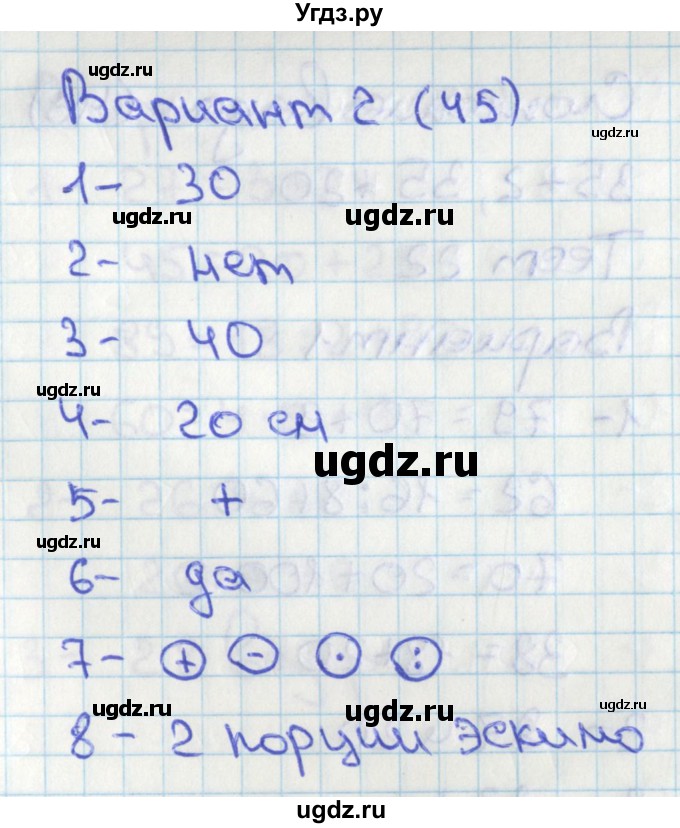 Угдз.ру
ugdz.ru
Вариант 2 (45)
ugdz.ru
1- 30
ugdz.ru ugdz.ru
2- нет
3- 40
ugdz.ru
4- 20 см
ugdz.ru
5- +
ugdz.ru
6- да
7- + - · :
ugdz.ru ugdz.ru ugdz.ru
8- 2 порции эскимо
ugdz.ru